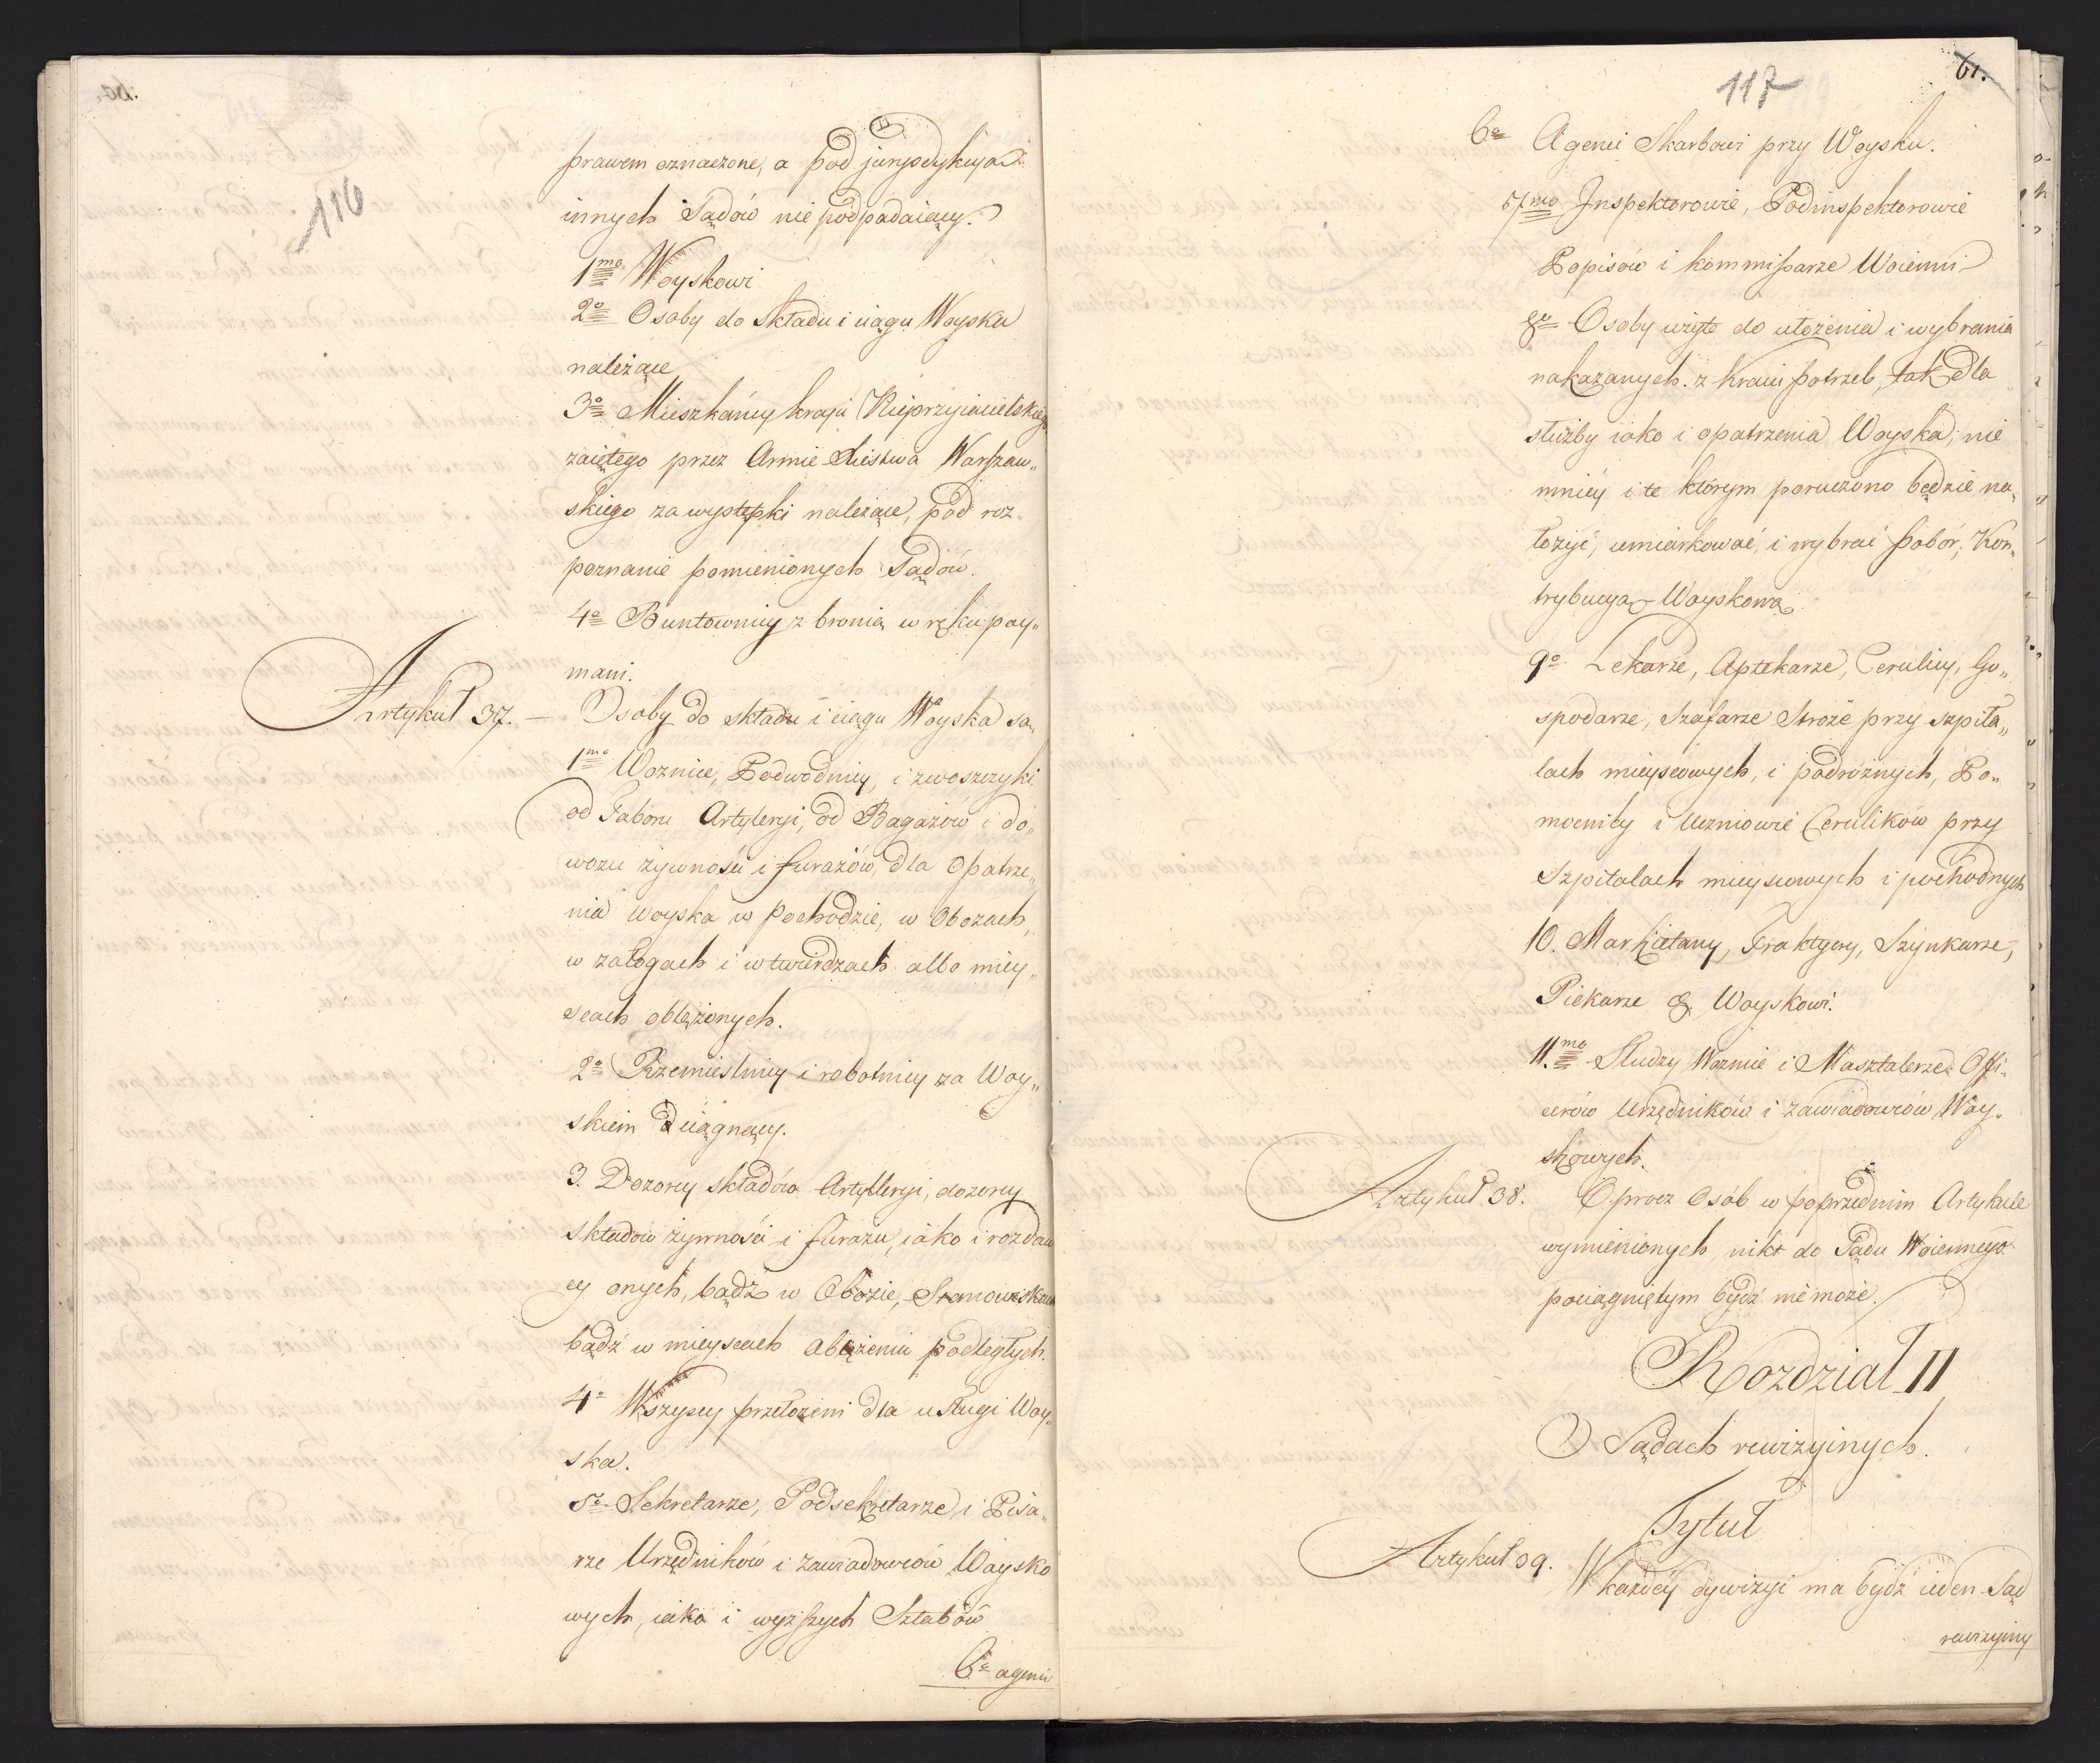 116
prawem oznaczone, a pod jurysdykcyą
innych Sądów nie podpadaiący.
1mo Woyskowi
2o Osoby do składu i ciągu Woyska
należące
3o Mieszkańcy kraju Nieprzyiacielskiego
zaiętego przez Armie Xiestwa Warszaw„
skiego za występki należące, pod roz
poznanie pomienionych Sądów.
4o Buntownicy z bronią w ręku poy„
mani.
Artykuł 37. — Osoby do składu i ciągu Woyska są,
1mo Woznice, Podwodnicy, i zwoszczyki
od Taboru Artyleryi, od Bagażów i do„
wozu żywności i furażów, dla Opatrze„
nia Woyska w Pochodzie, w Obozach,
w załogach i w twierdzach albo miey„
scach oblężonych.
2o Rzemieslnicy i robotnicy za Woy„
skiem ciągnący.
3. Dozorcy składów Artylleryi, dozorcy
składów żywności i furażu, iako i rozdaw
cy onych, bądź w Obozie, Stanowiskach
bądź w mieyscach oblężeniu podległych.
4o Wszyscy przełożeni dla usługi Woy„
ska.
5o Sekretarze, Podsekretarze, i Pisa„
rze Urzędników i zawiadowców Woysko
wych, iako i wyższych Sztabów
6o agenci
117
61.
6o Agenci Skarbowi przy Woysku.
7mo Inspektorowie, Podinspektorowie
Popisów i kommissarze Woienni
8o Osoby użyte do ułożenia i wybrania
nakazanych z Kraiu potrzeb, tak dla
służby iako i opatrzenia Woyska; nie
mniéy i te którym poruczono będzie na„
łożyć, umiarkować, i wybrać pobór, Kon„
trybucyą Woyskową.
9o Lekarze, Aptekarze, Cerulicy, Go„
spodarze, Szafarze Stroże przy szpita„
lach mieyscowych, i podróżnych, Po„
mocnicy i Uczniowie Cerulików przy
Szpitalach mieyscowych i pochodnych
10. Markietany, Traktyery, Szynkarze,
Piekarze & Woyskowi.
11.mo Słudzy Woznice i Masztalerze Offi„
cerów Urzędników i zawiadowców Woy„
skowych.
Artykuł 38. Oprocz Osób w poprzednim Artykule
wymienionych, nikt do Sądu Woiennego
pociągniętym bydź nie może.
Rozdział II
O Sądach rewizyinych.
Tytuł
Artykuł 39. W każdéy dywizyi ma bydź ieden Sąd
rewizyiny